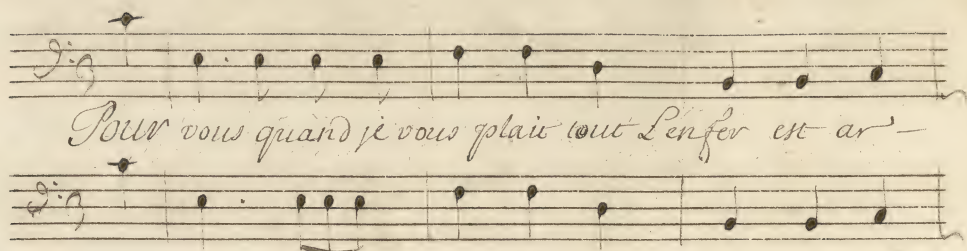 Pour vous quand je vous plait tout L'enfer est ar -